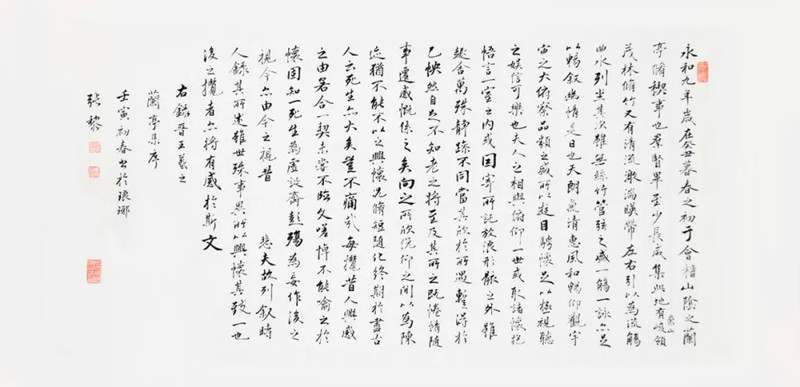 永和九年歲在癸丑暮春之初于會稽山陰之蘭
亭脩稧事也群賢畢至少長咸集此地有崇山峻領
茂林脩竹又有清流激湍暎帶左右引以為流觴
曲水列坐其次雖無絲竹管弦之盛一觴一詠亦足
以暢敘幽情是日也天朗氣清惠風和暢仰觀宇
宙之大俯察品類之盛所以遊目騁懷足以極視聽
之娛信可樂也夫人之相與俯仰一世或取諸懷抱
悟言一室之內或因寄所託放浪形骸之外雖
趣舍萬殊靜躁不同當其欣於所遇暫得於
己怏然自足不知老之將至及其所之既倦情隨
事遷感慨係之矣向之所欣俛仰之間以為陳
迹猶不能不以之興懷況脩短隨化終期於盡古
人云死生亦大矣豈不痛哉每攬昔人興感
之由若合一契未嘗不臨文嗟悼不能喻之於
懷固知一死生為虛誕齊彭殤為妄作後之
視今亦由今之視昔 悲夫故列敘時
人錄其所述雖世殊事異所以興懷其致一也
後之攬者亦將有感於斯文
右錄晉王羲之
蘭亭集序
壬寅初春書於琅琊
張黎